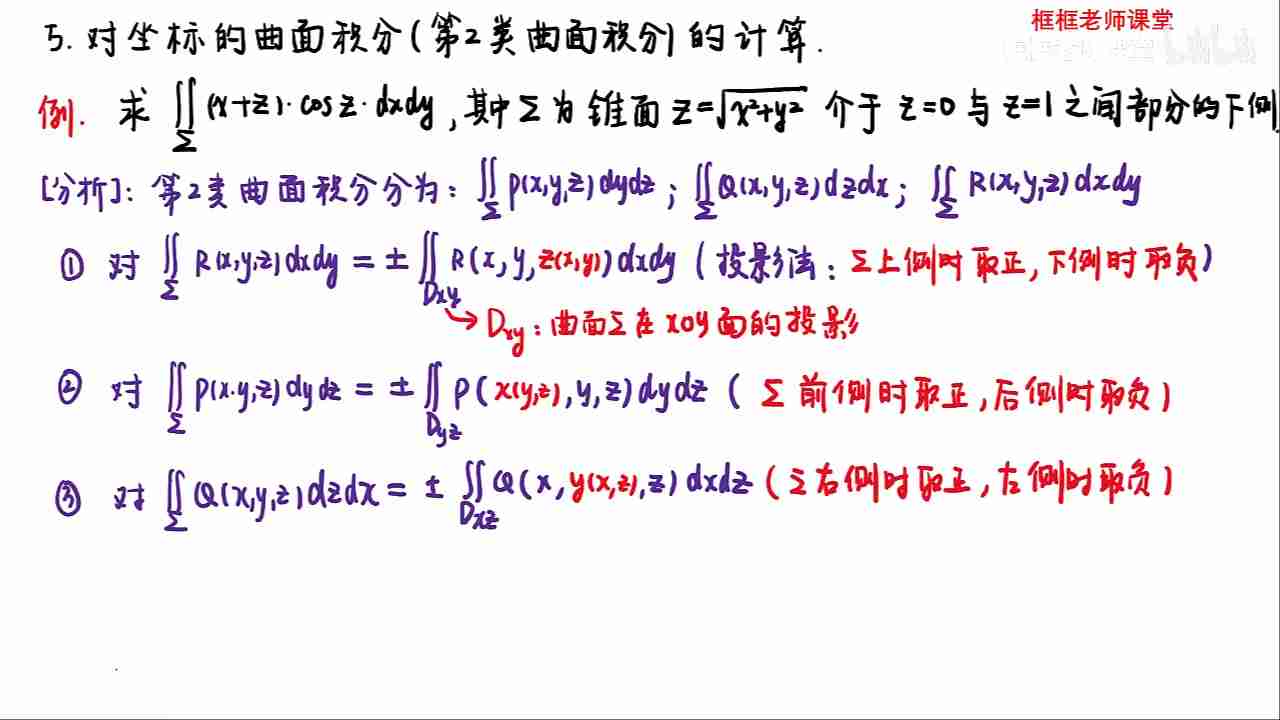 框框老师课堂
5. 对坐标的曲面积分(第2类曲面积分)的计算.
例. 求 ∬_Σ (x+z)·cosz·dxdy, 其中Σ为锥面 z=√(x²+y²) 介于 z=0 与 z=1 之间部分的下侧
[分析]: 第2类曲面积分分为: ∬_Σ P(x,y,z)dydz; ∬_Σ Q(x,y,z)dzdx; ∬_Σ R(x,y,z)dxdy
① 对 ∬_Σ R(x,y,z)dxdy = ± ∬_Dxy R(x,y,z(x,y))dxdy (投影法: Σ上侧时取正,下侧时取负)
→ Dxy: 曲面Σ在xoy面的投影
② 对 ∬_Σ P(x.y,z)dydz = ± ∬_Dyz P(x(y,z),y,z)dydz ( Σ前侧时取正,后侧时取负)
③ 对 ∬_Σ Q(x,y,z)dzdx = ± ∬_Dxz Q(x,y(x,z),z)dxdz (Σ右侧时取正,左侧时取负)